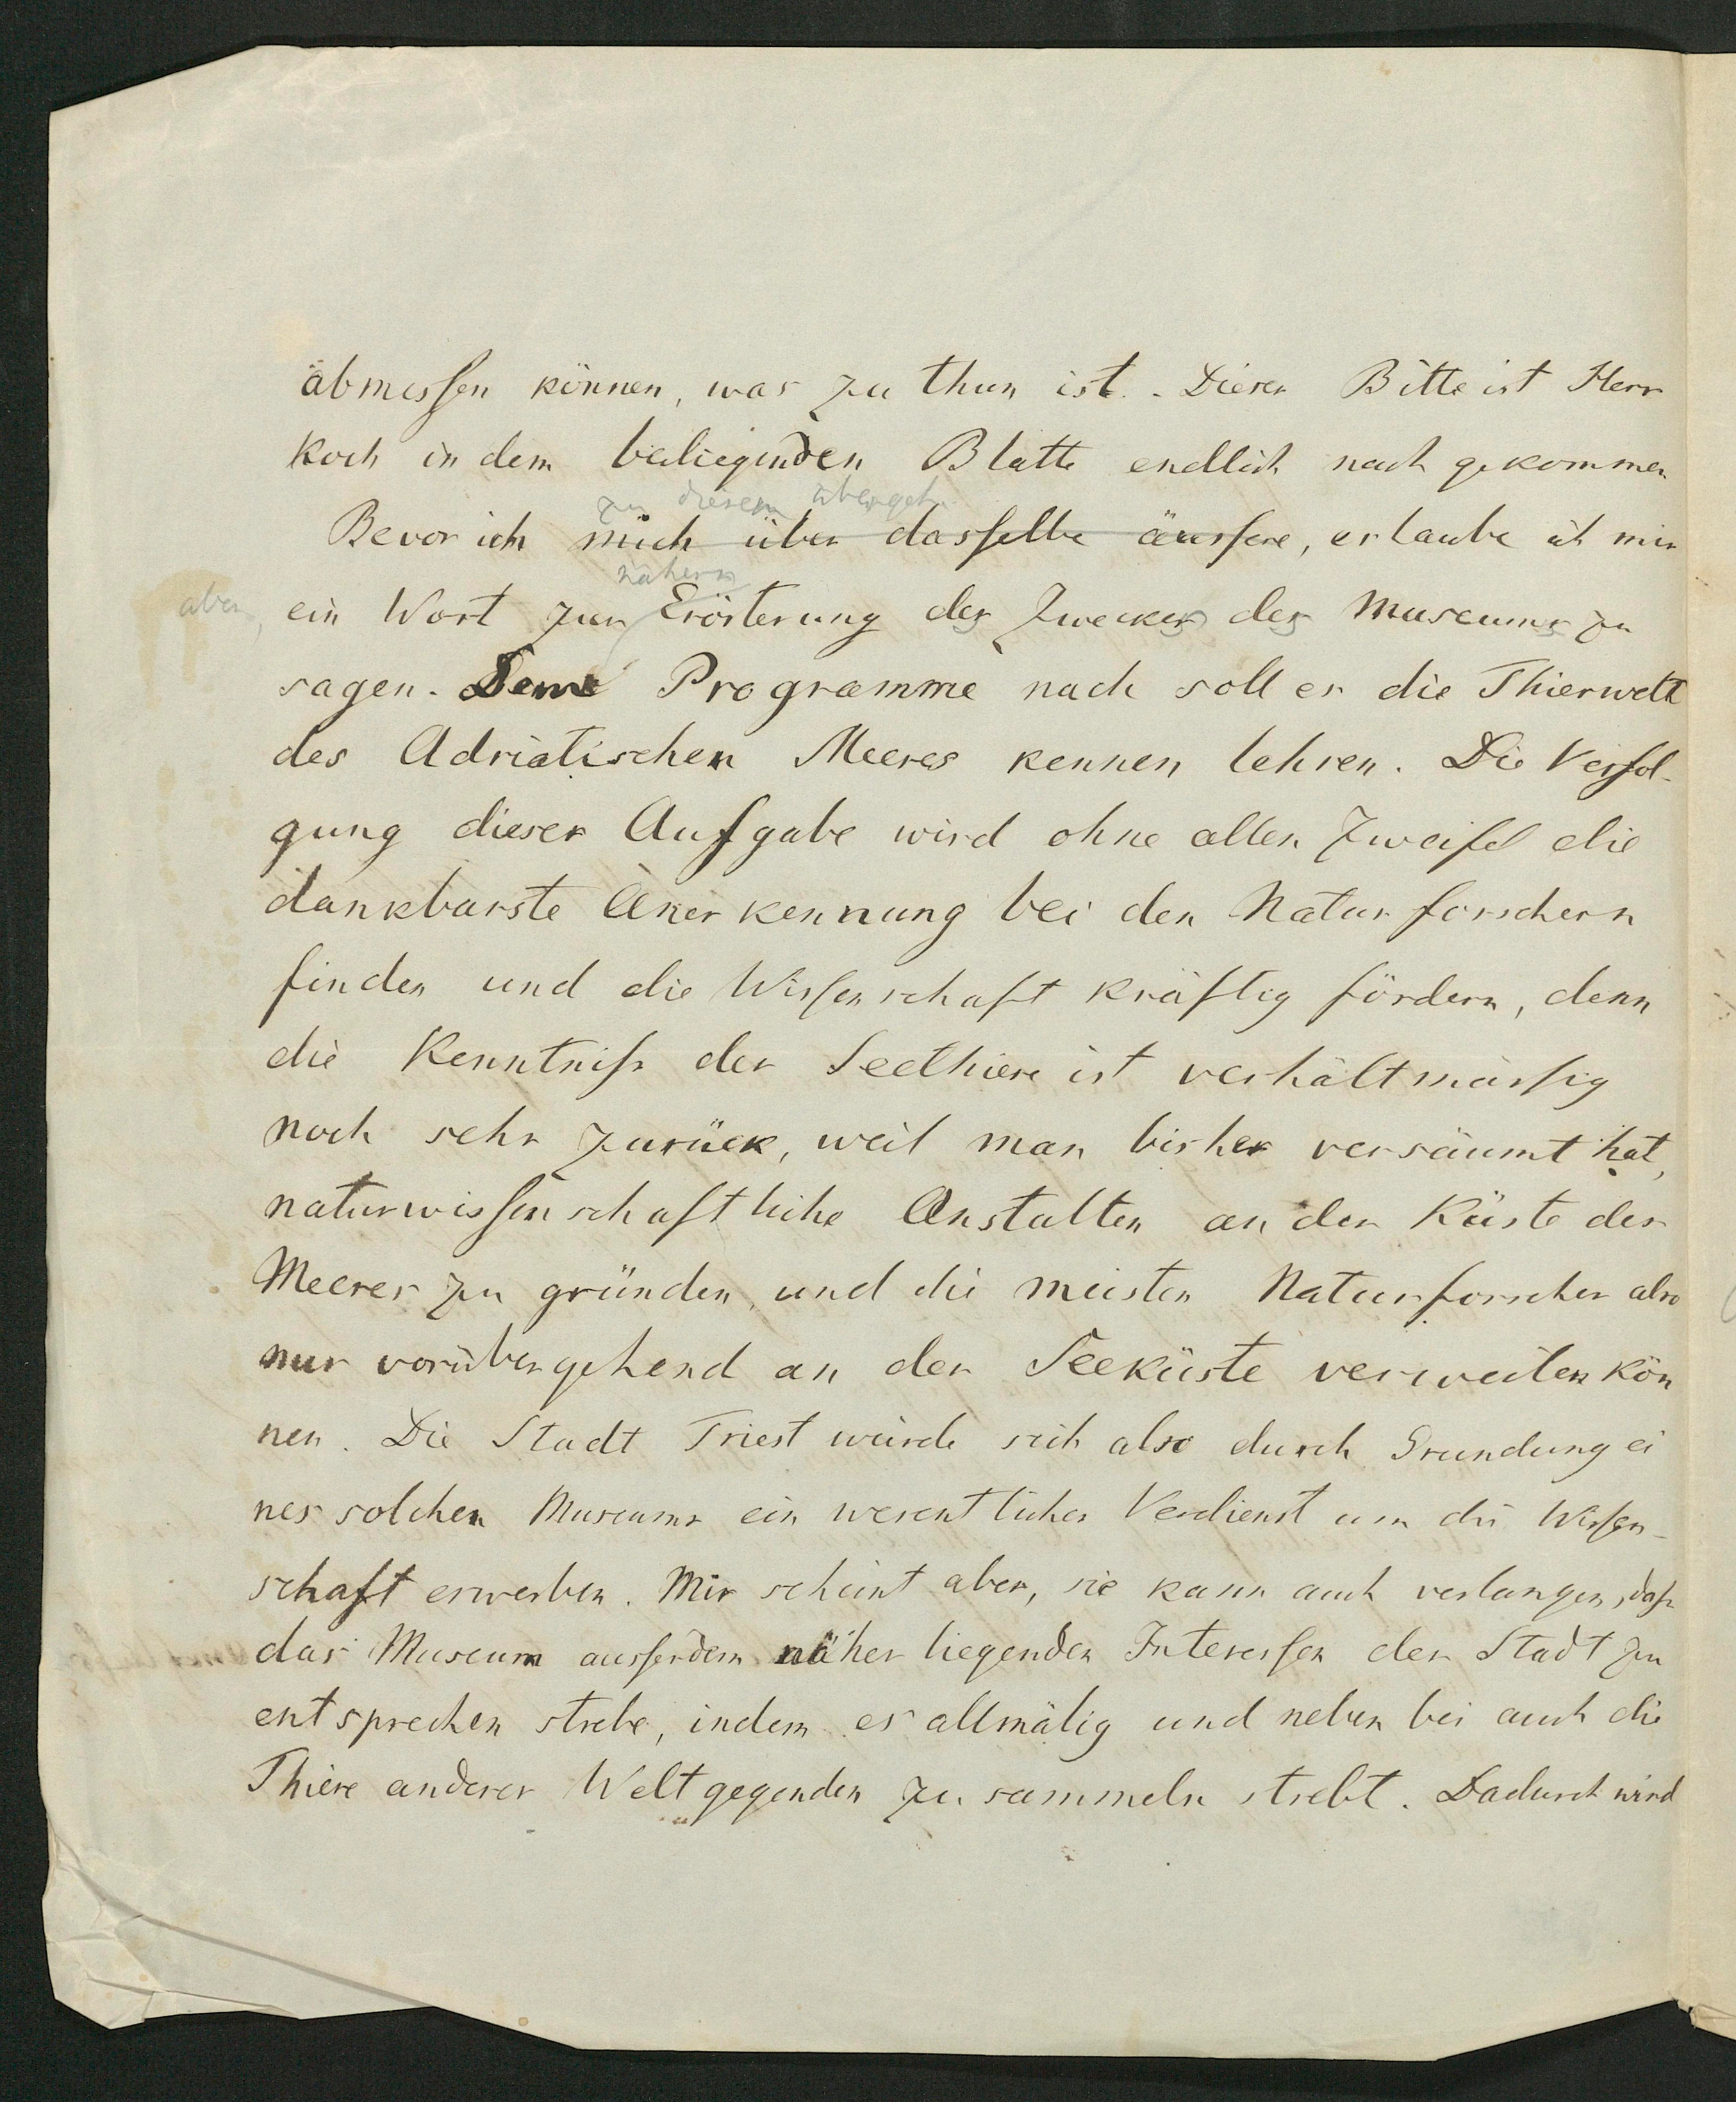 abmessen können, was zu thun ist. Dieser Bitte ist Herr
Koch in dem beiliegenden Blatte endlich nach gekommen
zu diesem übergehe
Bevor ich mich über dasselbe äussere, erlaube ich mir
nähern
aber, ein Wort zur Erörterung des Zweckes des Museums zu
sagen. Dem Programme nach soll es die Thierwelt
des Adriatischen Meeres kennen lehren. Die Verfol-
gung dieser Aufgabe wird ohne allen Zweifel die
dankbarste Anerkennung bei den Naturforschern
finden und die Wissenschaft kräftig fördern, denn
die Kenntniss der Seethiere ist verhältmässig
noch sehr zurück, weil man bisher versäumt hat,
naturwissenschaftliche Anstalten an der Küste des
Meeres zu gründen, und die meisten Naturforscher also
nur vorübergehend an der Seeküste verweilen kön
nen. Die Stadt Triest würde sich also durch Gründung ei
nes solchen Museums ein wesentliches Verdienst um die Wissen-
schaft erwerben. Mir scheint aber, sie kann auch verlangen, dass
das Museum ausserdem näher liegenden Interessen der Stadt zu
entsprechen strebe, indem es allmälig und neben bei auch die
Thiere anderer Weltgegenden zu sammeln strebt. Dadurch wird